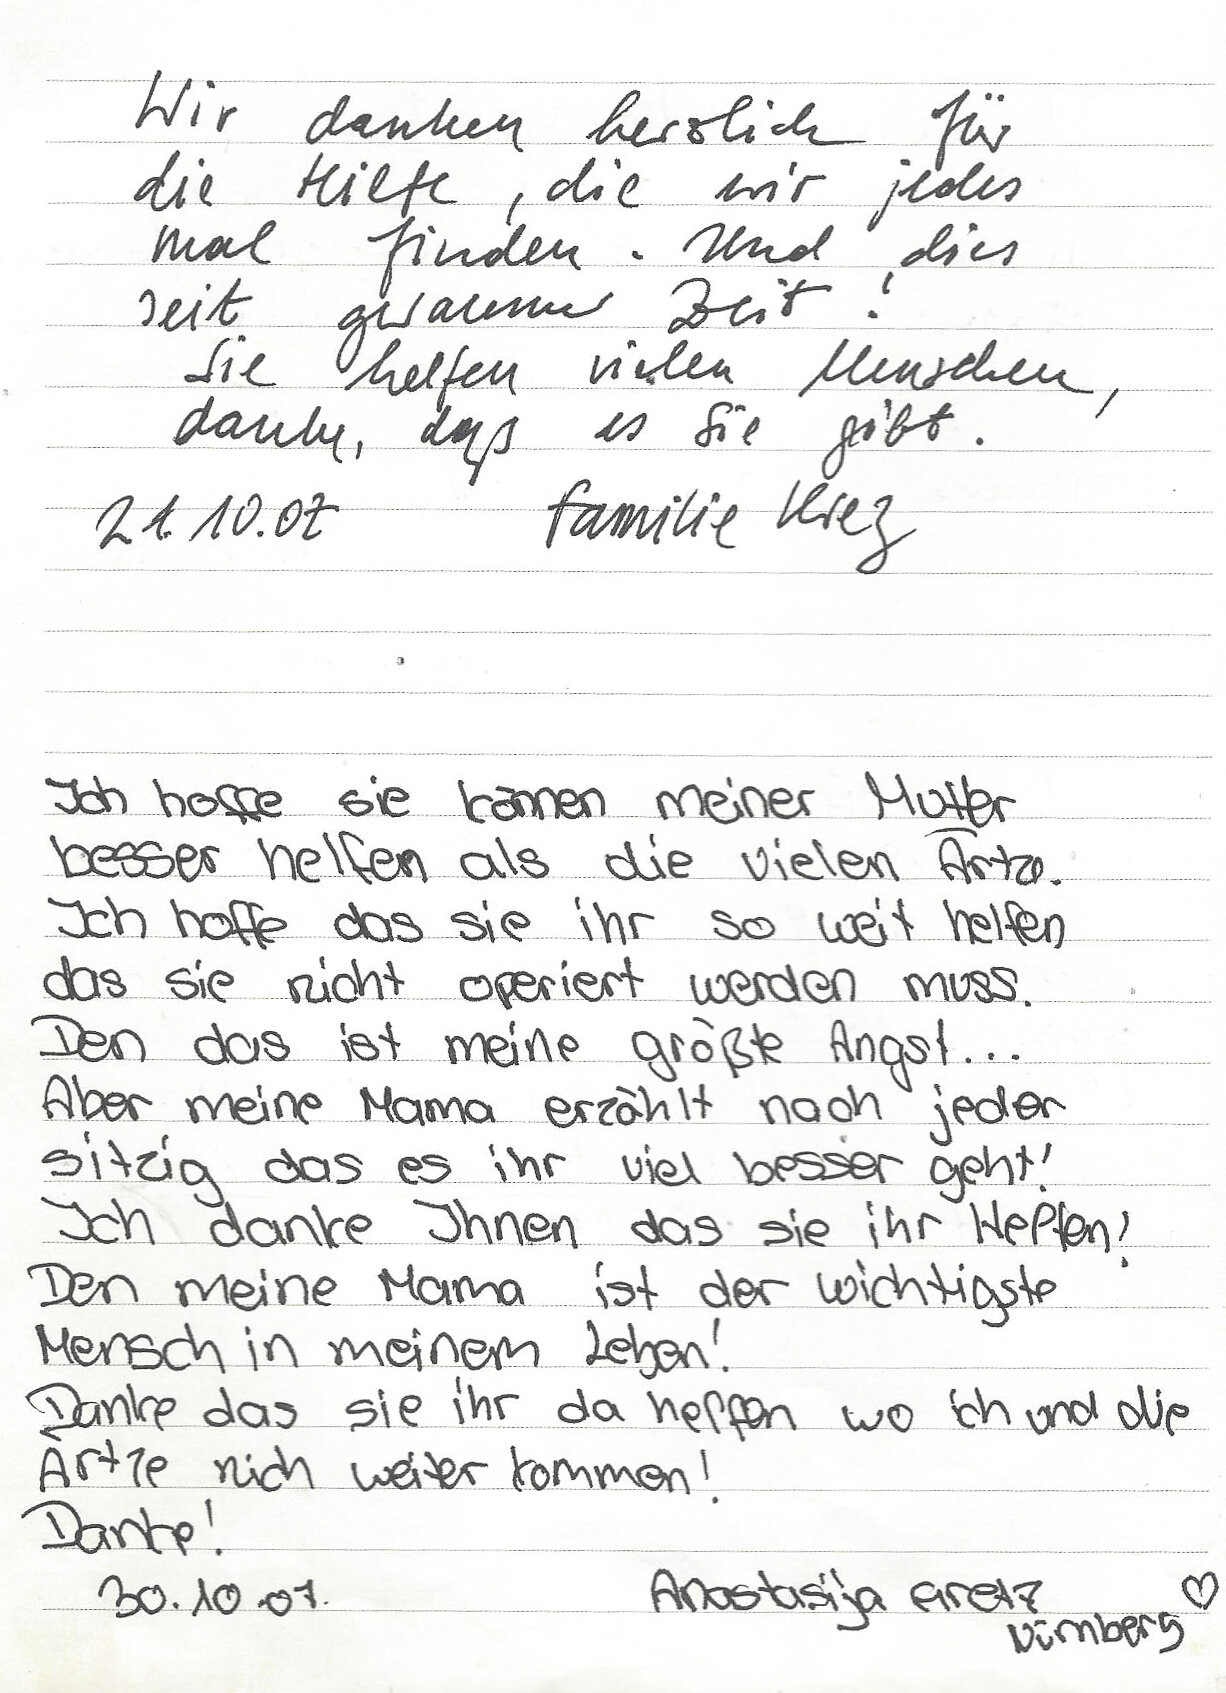 Wir danken herzlich für
die Hilfe, die wir jedes
mal finden. Und dies
seit geraumer Zeit!
Sie helfen vielen Menschen,
danke, daß es Sie gibt.
21.10.07 Familie
Ich hoffe sie können meiner Mutter
besser helfen als die vielen Ärtze.
Ich hoffe das sie ihr so weit helfen
das sie nicht operiert werden muss.
Den das ist meine größte Angst...
Aber meine Mama erzählt nach jeder
sitzig das es ihr viel besser geht!
Ich danke Ihnen das sie ihr Helfen!
Den meine Mama ist der wichtigste
Mensch in meinem Leben!
Danke das sie ihr da helfen wo ich und die
Ärtze nich weiter kommen!
Danke!
30.10.07. Anastasija
Nürnberg